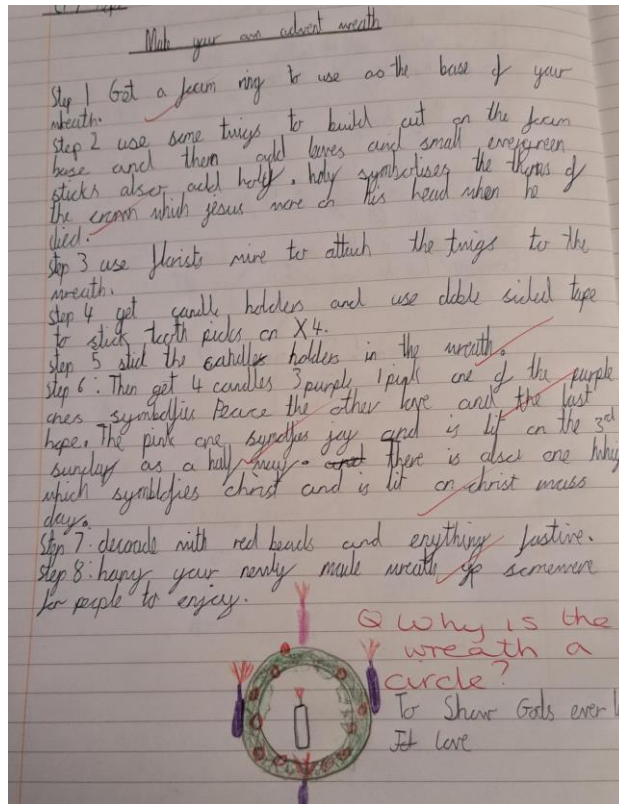 Make your own advent wreath
Step 1 Get a foam ring to use as the base of your
wreath.
Step 2 use some twigs to build out on the foam
base and then add leaves and small evergreen
sticks also add holly. holy symbolises the thorns of
the crown which jesus wore on his head when he
died.
Step 3 use florists wire to attach the twigs to the
wreath.
Step 4 get candle holders and use doble sided tape
to stick tooth picks on X4.
step 5 stick the candles holders in the wreath.
Step 6: Then get 4 candles 3 purple 1 pink one of the purple
ones symbolfies Peace the other love and the last
hope. The pink one joy and is lit on the 3rd
sunday as a half way. there is also one
which symblofies christ and is lit on christ mass
day.
Step 7: decorade with red beads and enything fastive.
Step 8: hang your newly made wreath up somewere
for people to enjoy.
Q Why is the
wreath a
circle?
To Show Gods ever
love